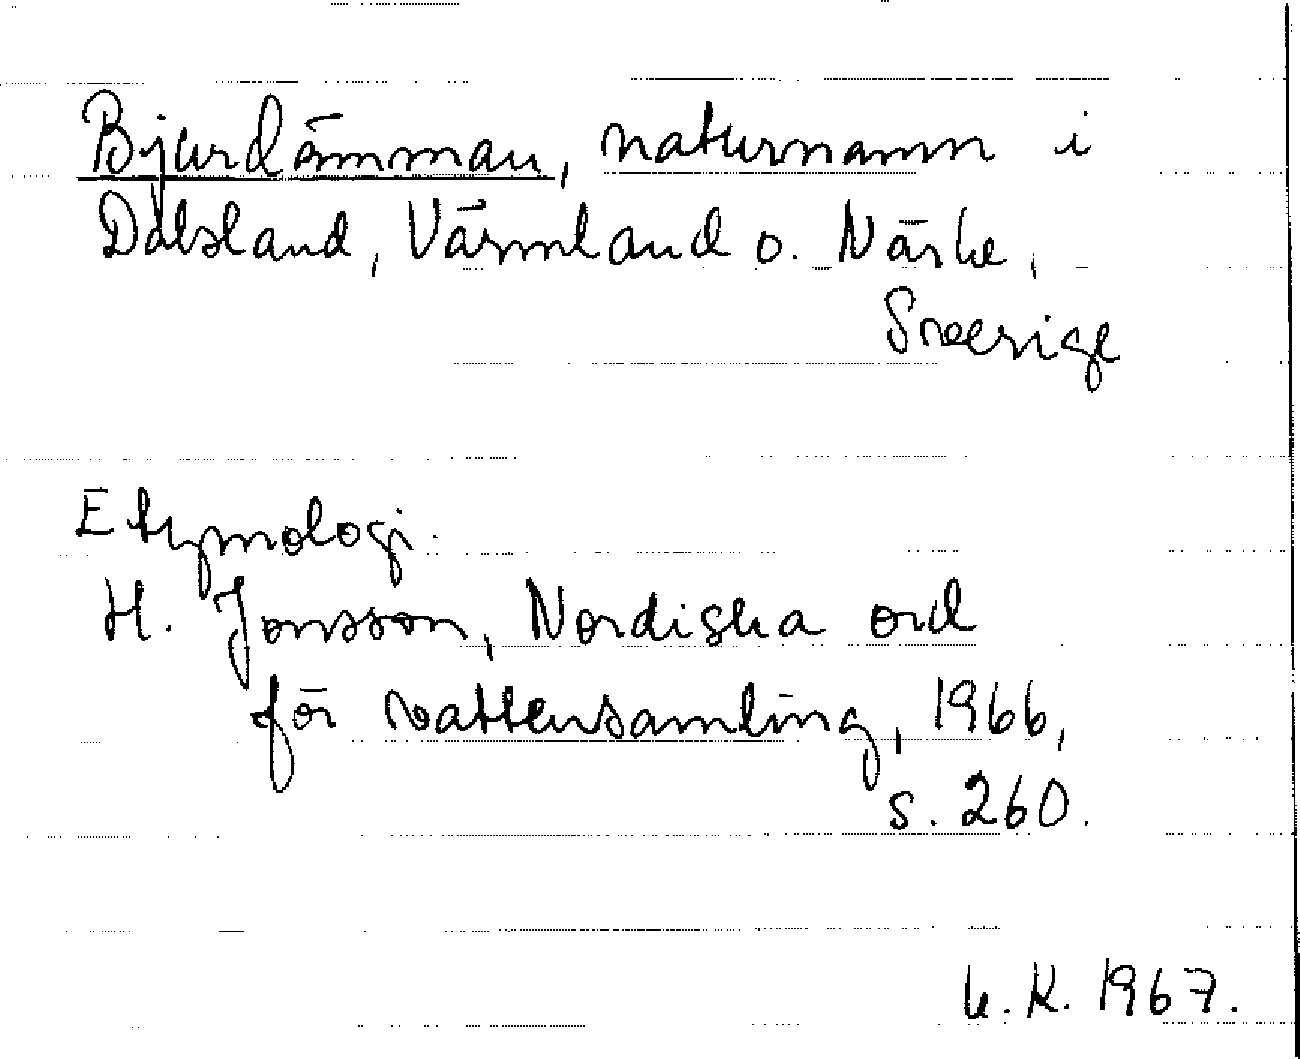 Bjurdämman, naturnamn i
Dalsland, Värmland o. Närke,
Sverige
Etymologi.
H. Jonsson, Nordiska ord
för vattensamling, 1966,
s. 260.
K. 1967.